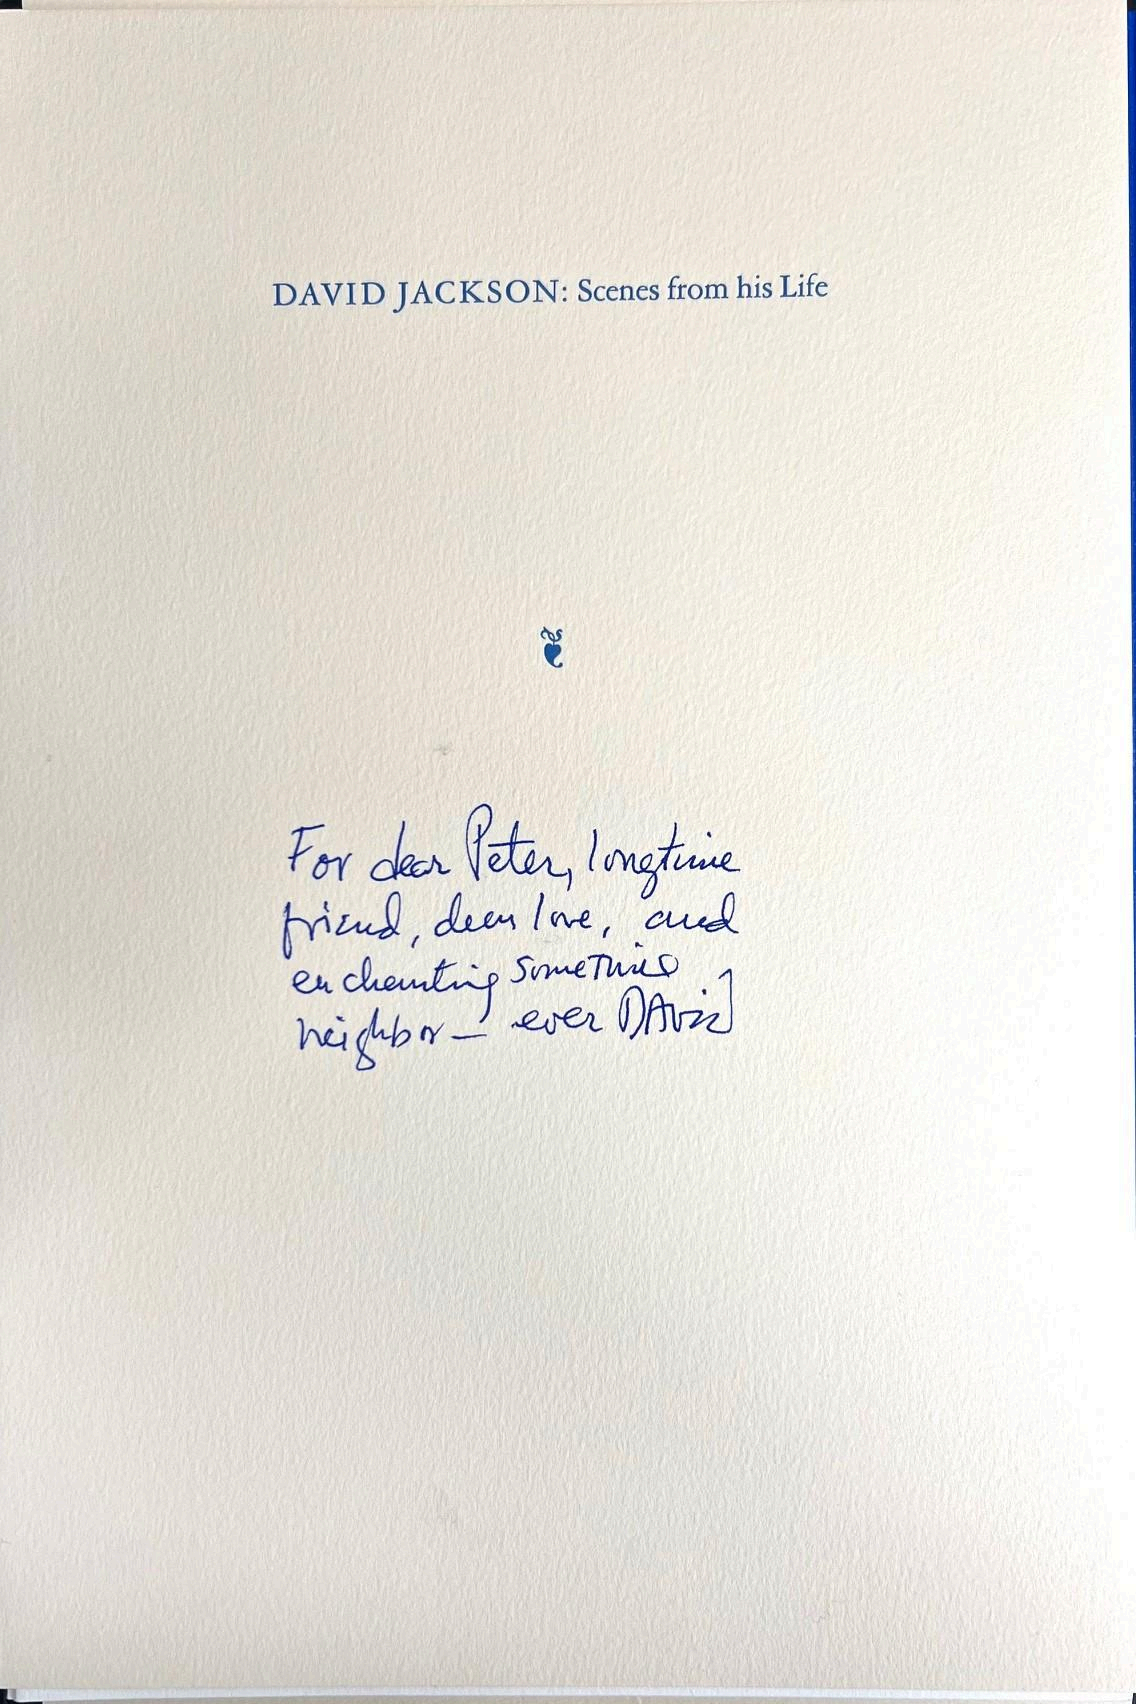 DAVID JACKSON: Scenes from his Life
For dear Peter, longtime
friend, dear love, and
enchanting sometimes
neighbor — ever DAvid